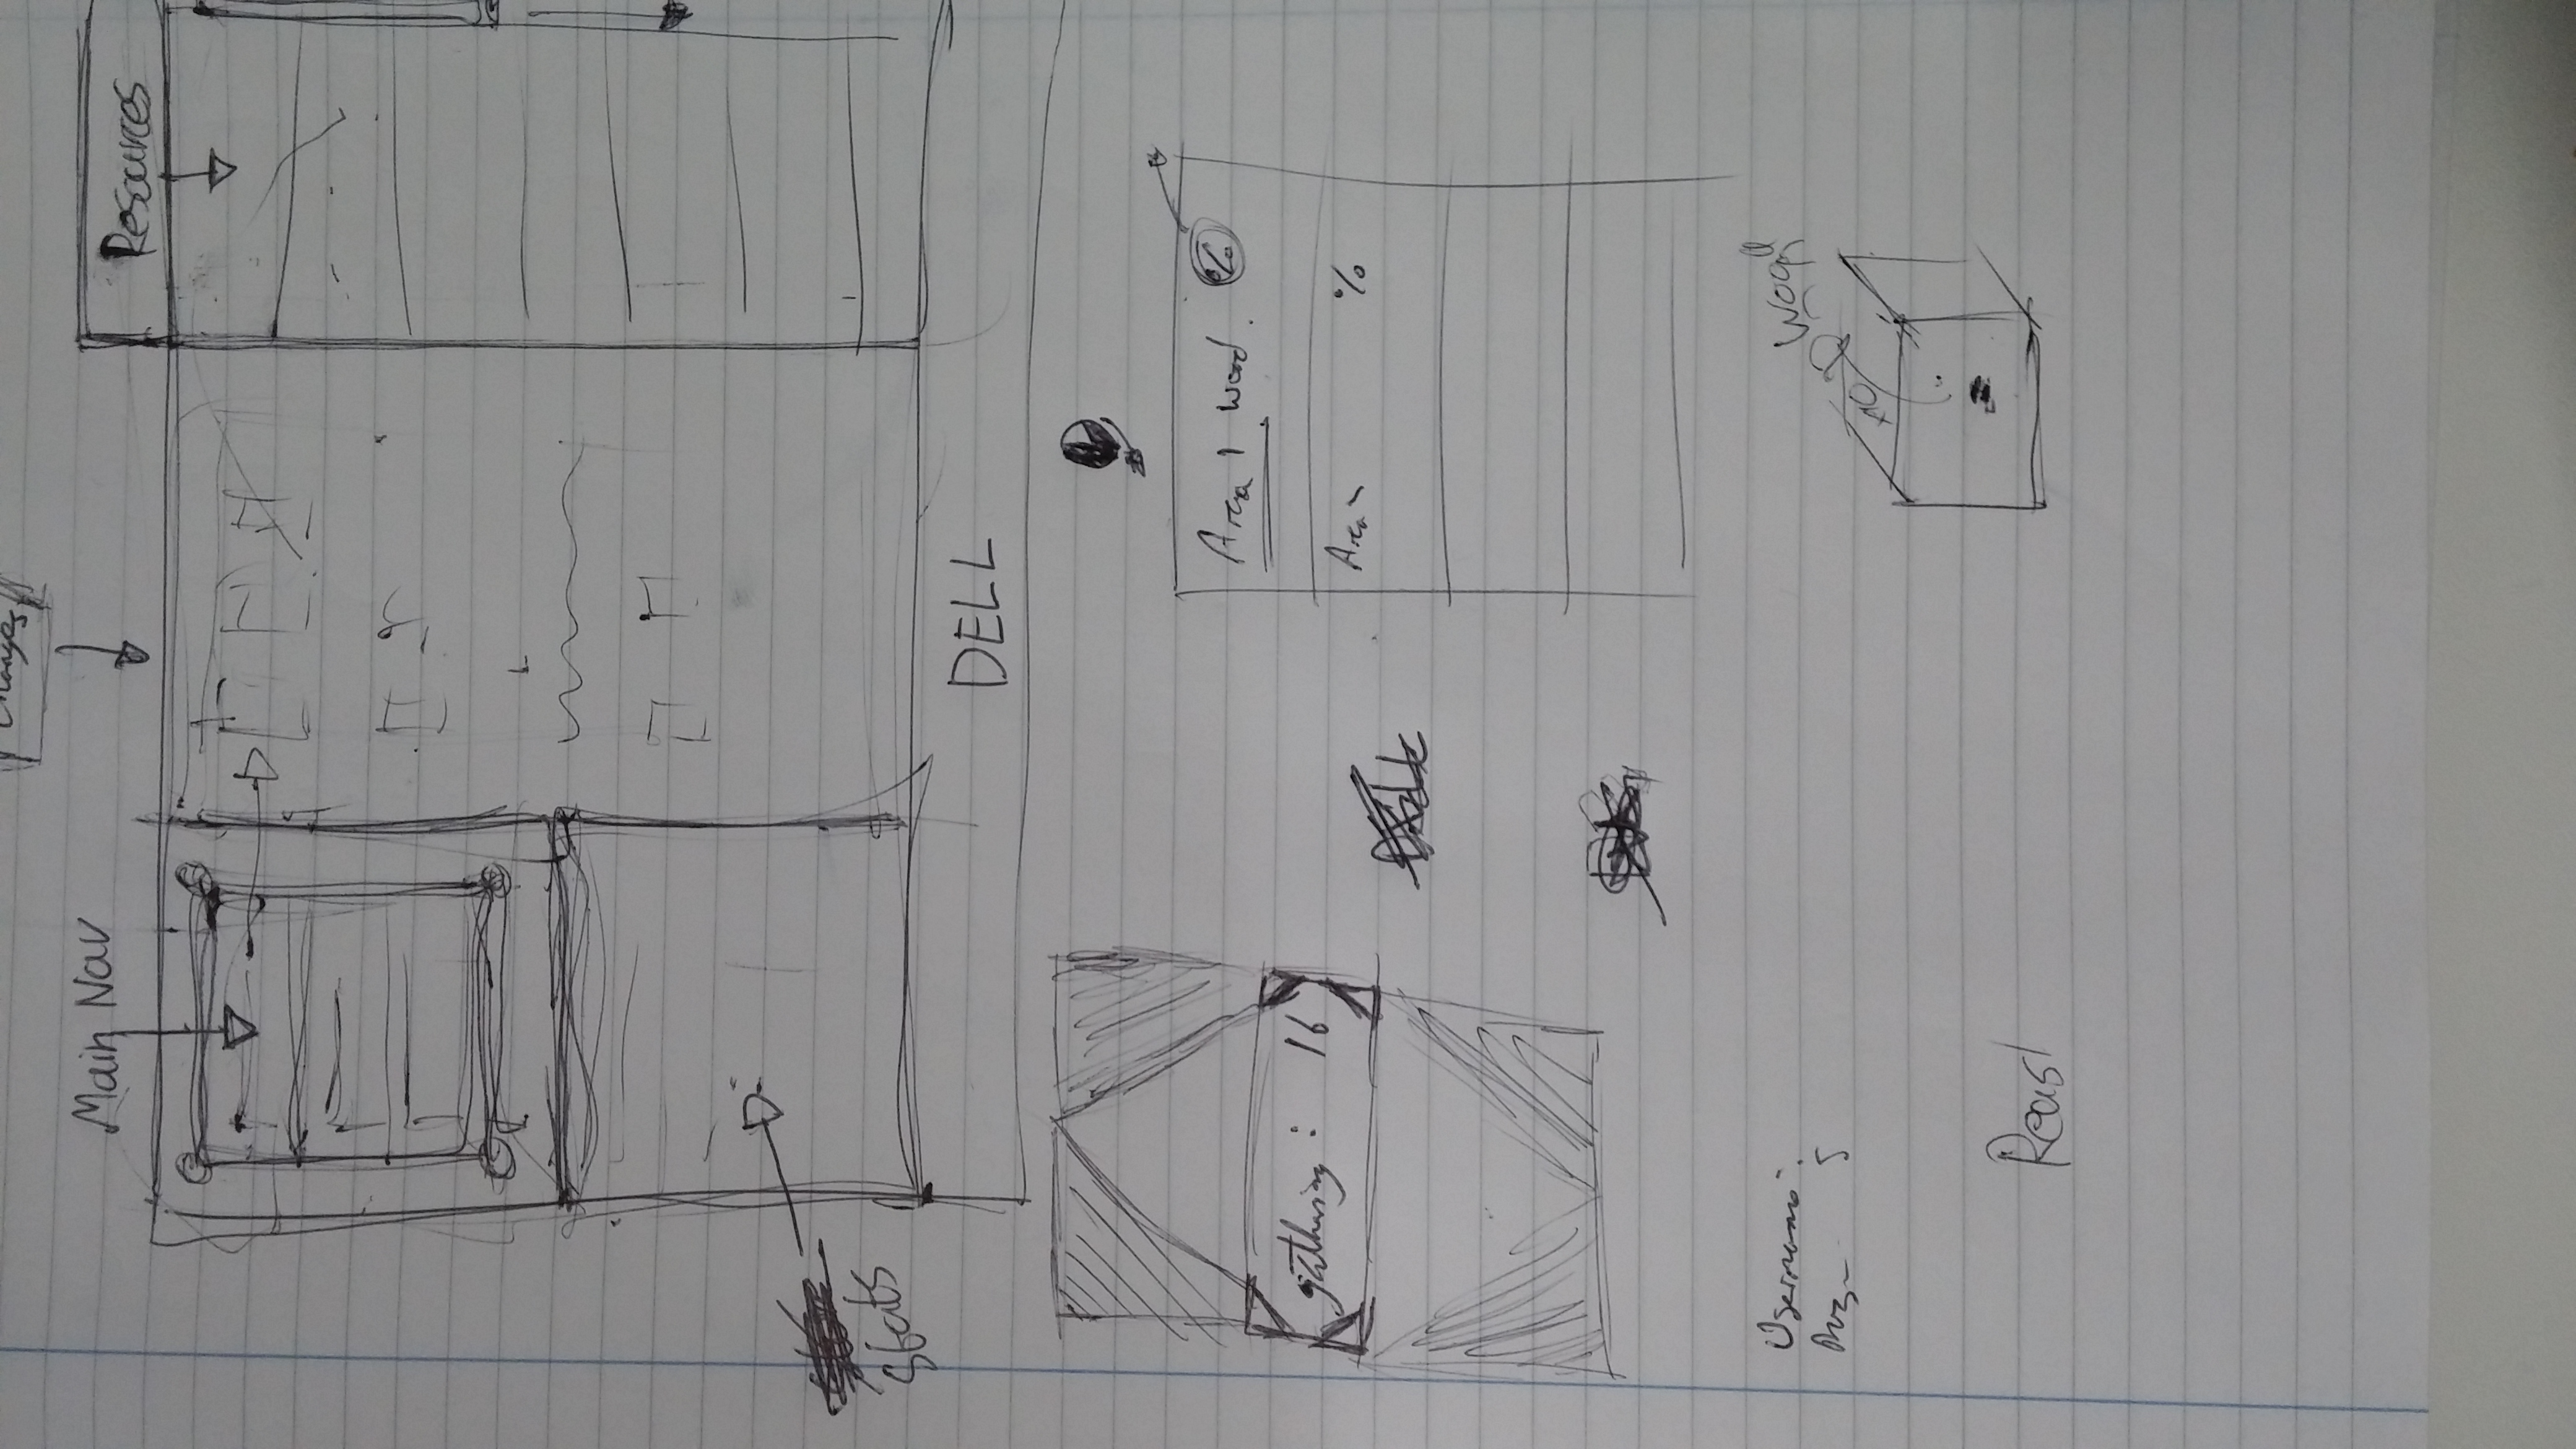 Changes
Main Nav
Resources
Stats
DELL
gathering: 16
Area 1 wood. %
Area %
Username: